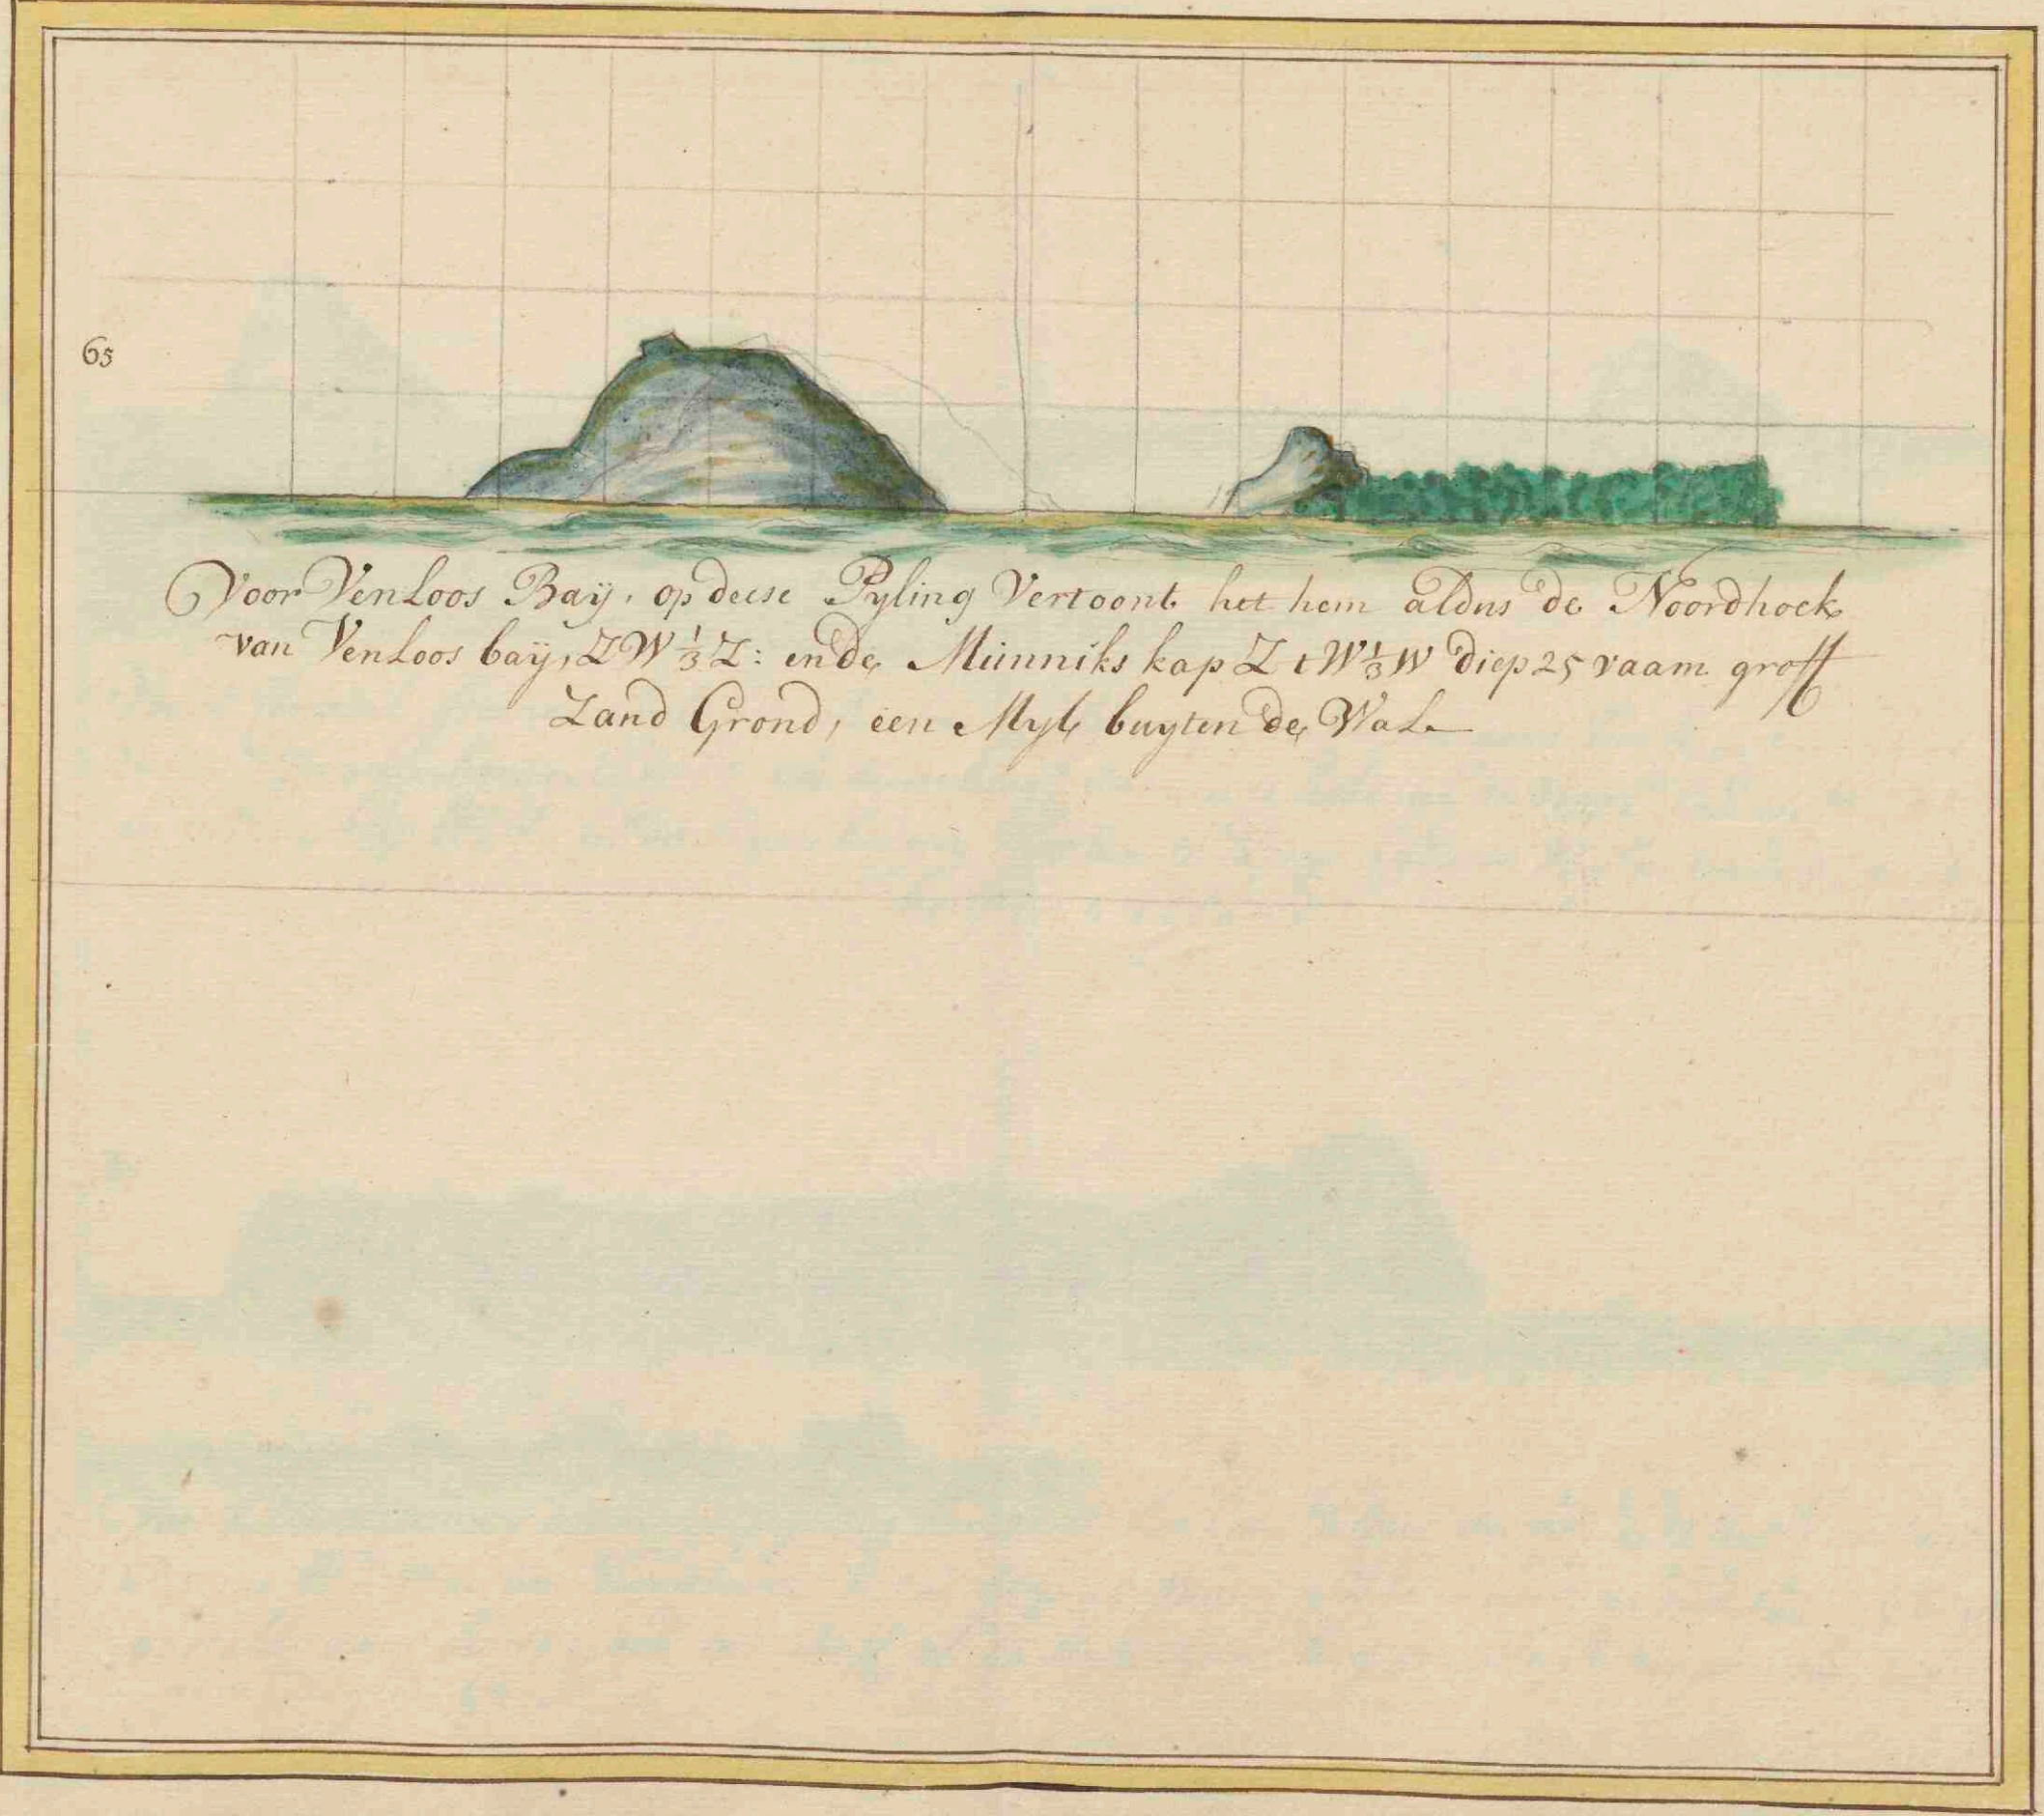 65
Voor Venloos Baÿ, op deese Pyling Vertoont het hem aldus de Noordhoek
van Venloos baÿ, ZW 1/3 Z: en de Münniks kap Z t W 1/3 W diep 25 vaam groff
Zand Grond, een Myl buyten de Wal